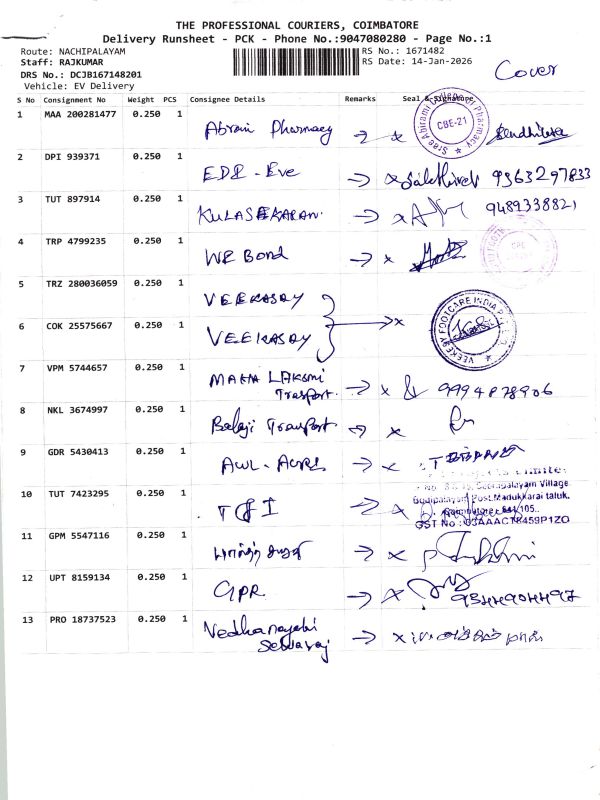 THE PROFESSIONAL COURIERS, COIMBATORE
Delivery Runsheet - PCK - Phone No.:9047080280 - Page No.:1
Route: NACHIPALAYAM
RS No.: 1671482
Staff: RAJKUMAR
RS Date: 14-Jan-2026
DRS No.: DCJB167148201
Vehicle: EV Delivery
Cover
S No Consignment No Weight PCS Consignee Details Remarks Seal & Signature
1 MAA 200281477 0.250 1 Abrami Pharmacy
Sree Abirami Pharmacy CBE-21
2 DPI 939371 0.250 1 EDE - Eve Sakthivel 9363297833
3 TUT 897914 0.250 1 KULASEKARAN 9489338821
4 TRP 4799235 0.250 1 WE Bond
5 TRZ 280036059 0.250 1 VEEKASAY
6 COK 25575667 0.250 1 VEEKASAY
VEEKESY FOOTCARE INDIA
7 VPM 5744657 0.250 1 MAHA LAKSMI
Trasport. 9994878906
8 NKL 3674997 0.250 1 Balaji Transport.
9 GDR 5430413 0.250 1 AWL-
10 TUT 7423295 0.250 1
Seerapalayam Village
Bodipalayam Post, Madukkarai taluk.
Coimbatore - 641 105.
11 GPM 5547116 0.250 1
12 UPT 8159134 0.250 1 GPR 9344904497
13 PRO 18737523 0.250 1 Vedhanayabi
Selvaraj